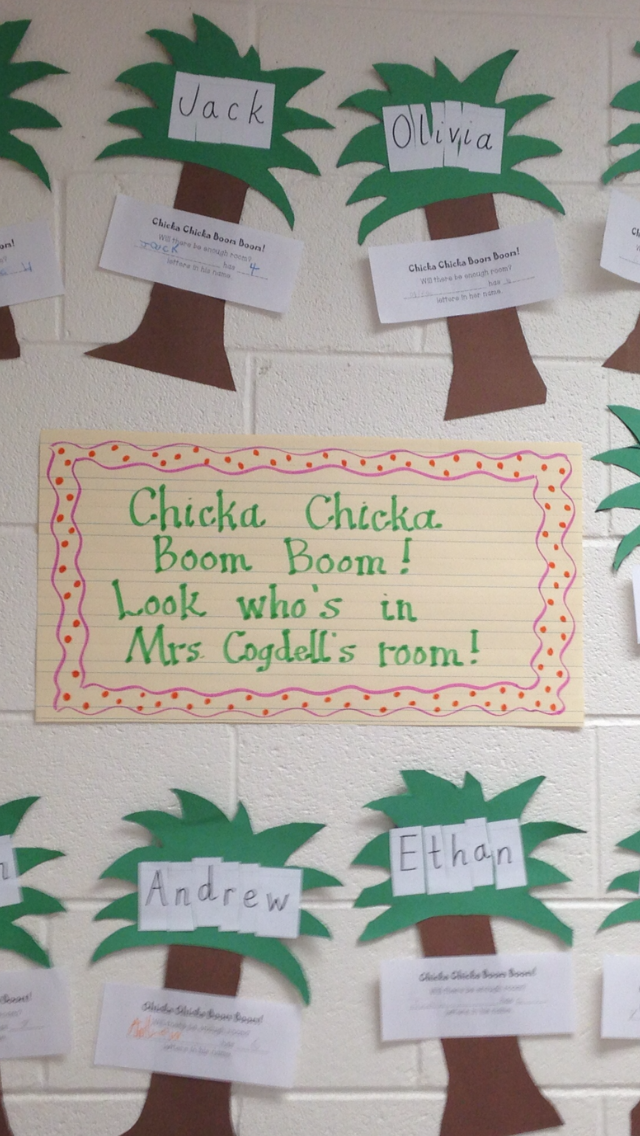 Jack
Olivia
Chicka Chicka Boom Boom!
Will there be enough room?
Jack has 4
letters in his name.
Chicka Chicka Boom Boom!
Will there be enough room?
has
letters in her name.
Chicka Chicka
Boom Boom!
Look who's in
Mrs. Cogdell's room!
Andrew
Ethan
Chicka Chicka Boom Boom!
Will there be enough room?
has
letters in his name.
Chicka Chicka Boom Boom!
Will there be enough room?
has
letters in his name.